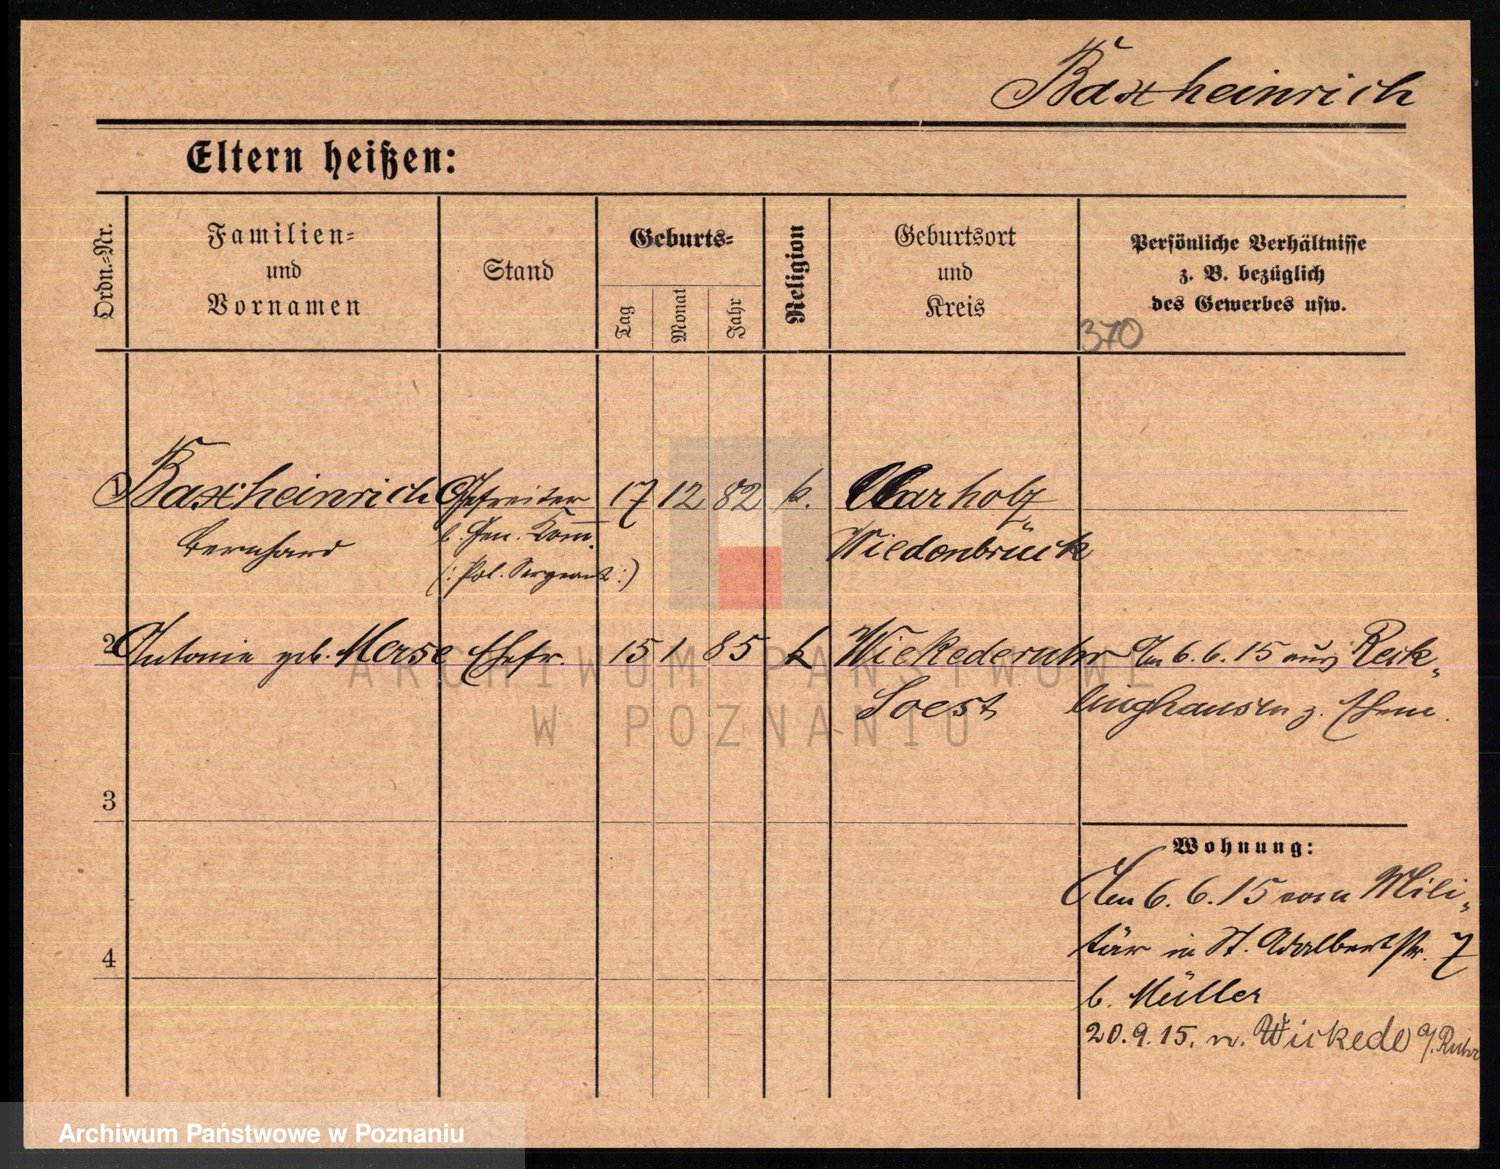 Baxheinrich
Eltern heißen:
Ordn.-Nr.
Familien-
und
Vornamen
Stand
Geburts-
Tag
Monat
Jahr
Religion
Geburtsort
und
Kreis
Persönliche Verhältnisse
z. B. bezüglich
des Gewerbes usw.
370
Baxheinrich Gefreiter 17 12 82 k. Clarholz
Bernhard b. Gen. Komm. Wiedenbrück
(: Pol. Sergeant :)
2 Antonie geb. Merse Ehefr. 15 1 85 k Wickederuhr Am 6.6.15 aus Reck-
Soest linghausen z. Ehem.
ARCHIWUM PAŃSTWOWE
W POZNANIU
3
Wohnung:
Am 6.6.15 vom Mili-
tär in St. Adalbertstr. 7
4
b. Müller
20.9.15. n. Wickede a/Ruhr
Archiwum Państwowe w Poznaniu